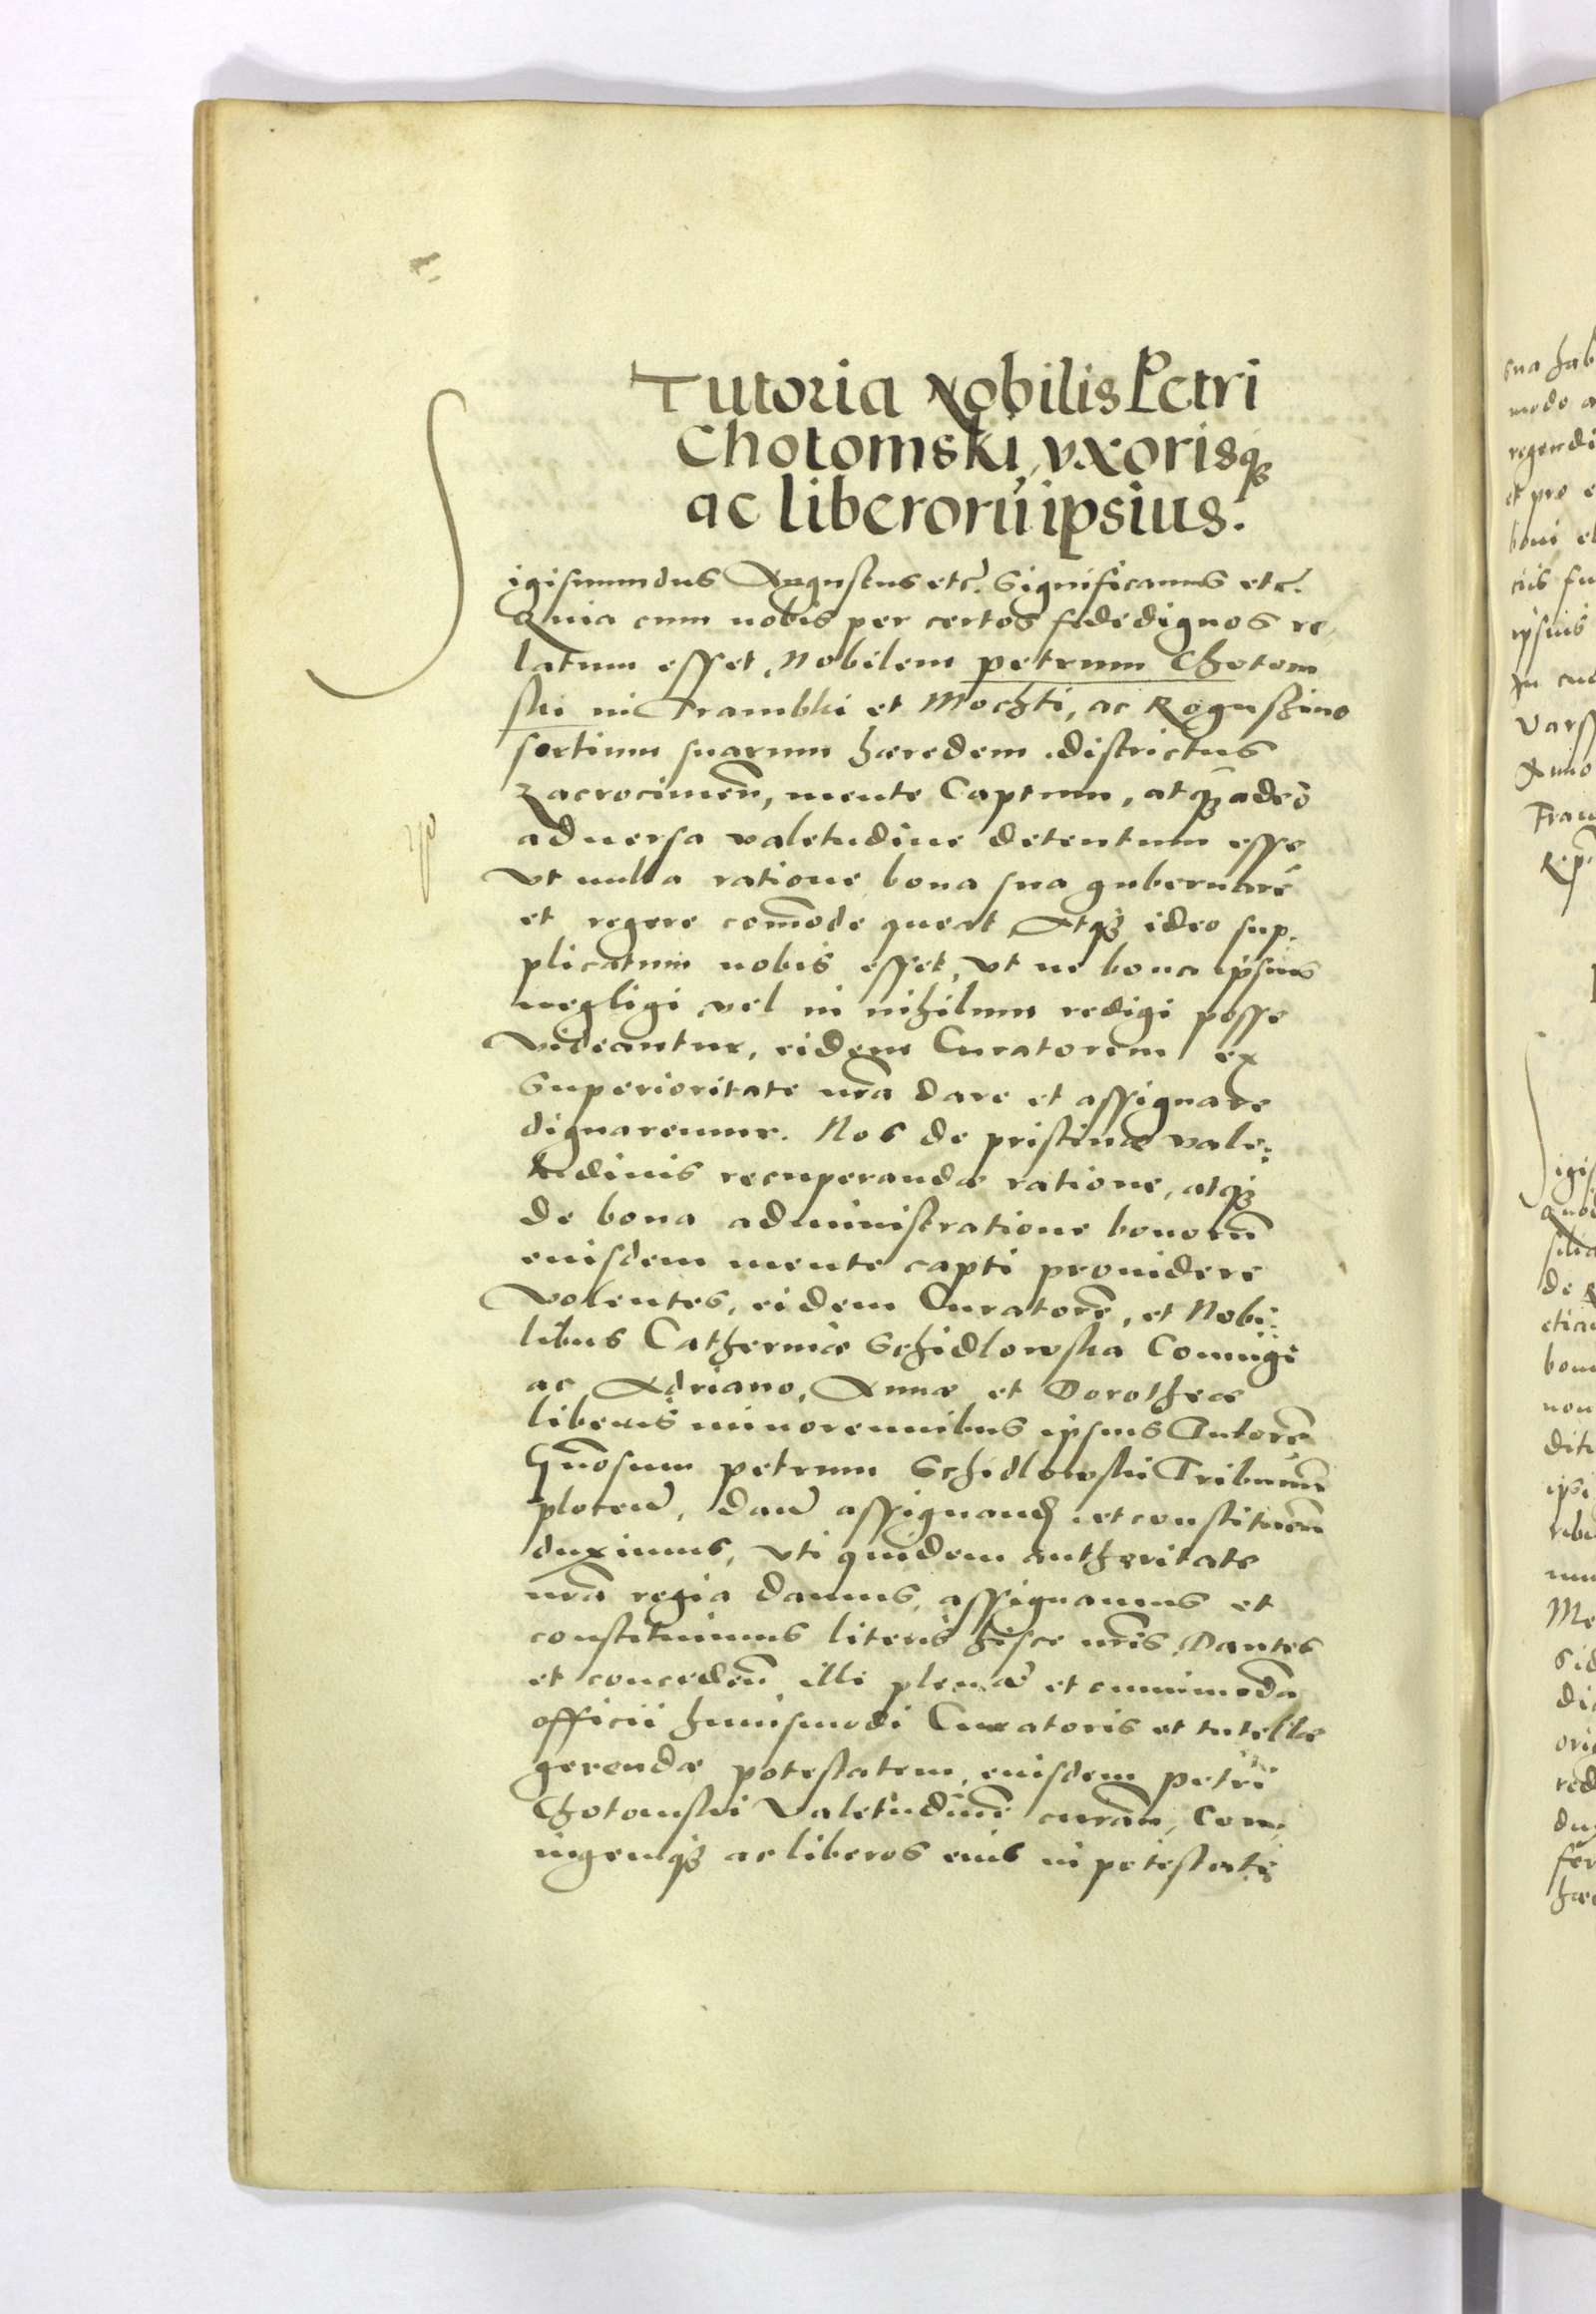 Tutoria Nobilis Petri
Chotomski, vxorisqꝫ
ac liberorū ipsius.
Sigismundus Augustus etc̄. Significamus etc̄.
Quia cum nobis per certos fidedignos re,
latum esset, Nobilem petrum Chotom
ski in Trambki et Mochti, ac Roguszino
sortium suarum hæredem districtus
Zacrocimeñ, mente Captum, atqꝫ adeò
aduersa valetudine detentum esse
vt nulla ratione bona sua gubernare
et regere com̄ode queat Atqꝫ ideo sup,
plicatum nobis esset, vt ne bona ipsius
negligi vel in nihilum redigi posse
videantur, eidem Curatorem ex
Superioritate nr̄a dare et assignare
dignaremur. Nos de pristinæ vale:
tudinis recuperandæ ratione, atqꝫ
de bona administratione bonorū
eiusdem mente capti prouidere
volentes, eidem Curatorē, et Nobi:
libus Catherinæ Schidlowska Coniugi
ac Adriano, Annæ et Dorotheæ
liberis minorennibus ipsius Tutorē
Gn̄osum petrum Schidlowski Tribunū
plocen̄, dan̄ assignand et constituen̄
duximus, vti quidem authoritate
nr̄a regia damus, assignamus et
constituimus literis hisce nr̄is, Dantes
et conceden̄ illi plenā et omnimodā
officii huiusmodi Curatoris et tutellæ
gerendæ potestatem, eiusdem petri
Chotomski valetudinē curān, Con,
iugemqꝫ ac liberos eius in potestate